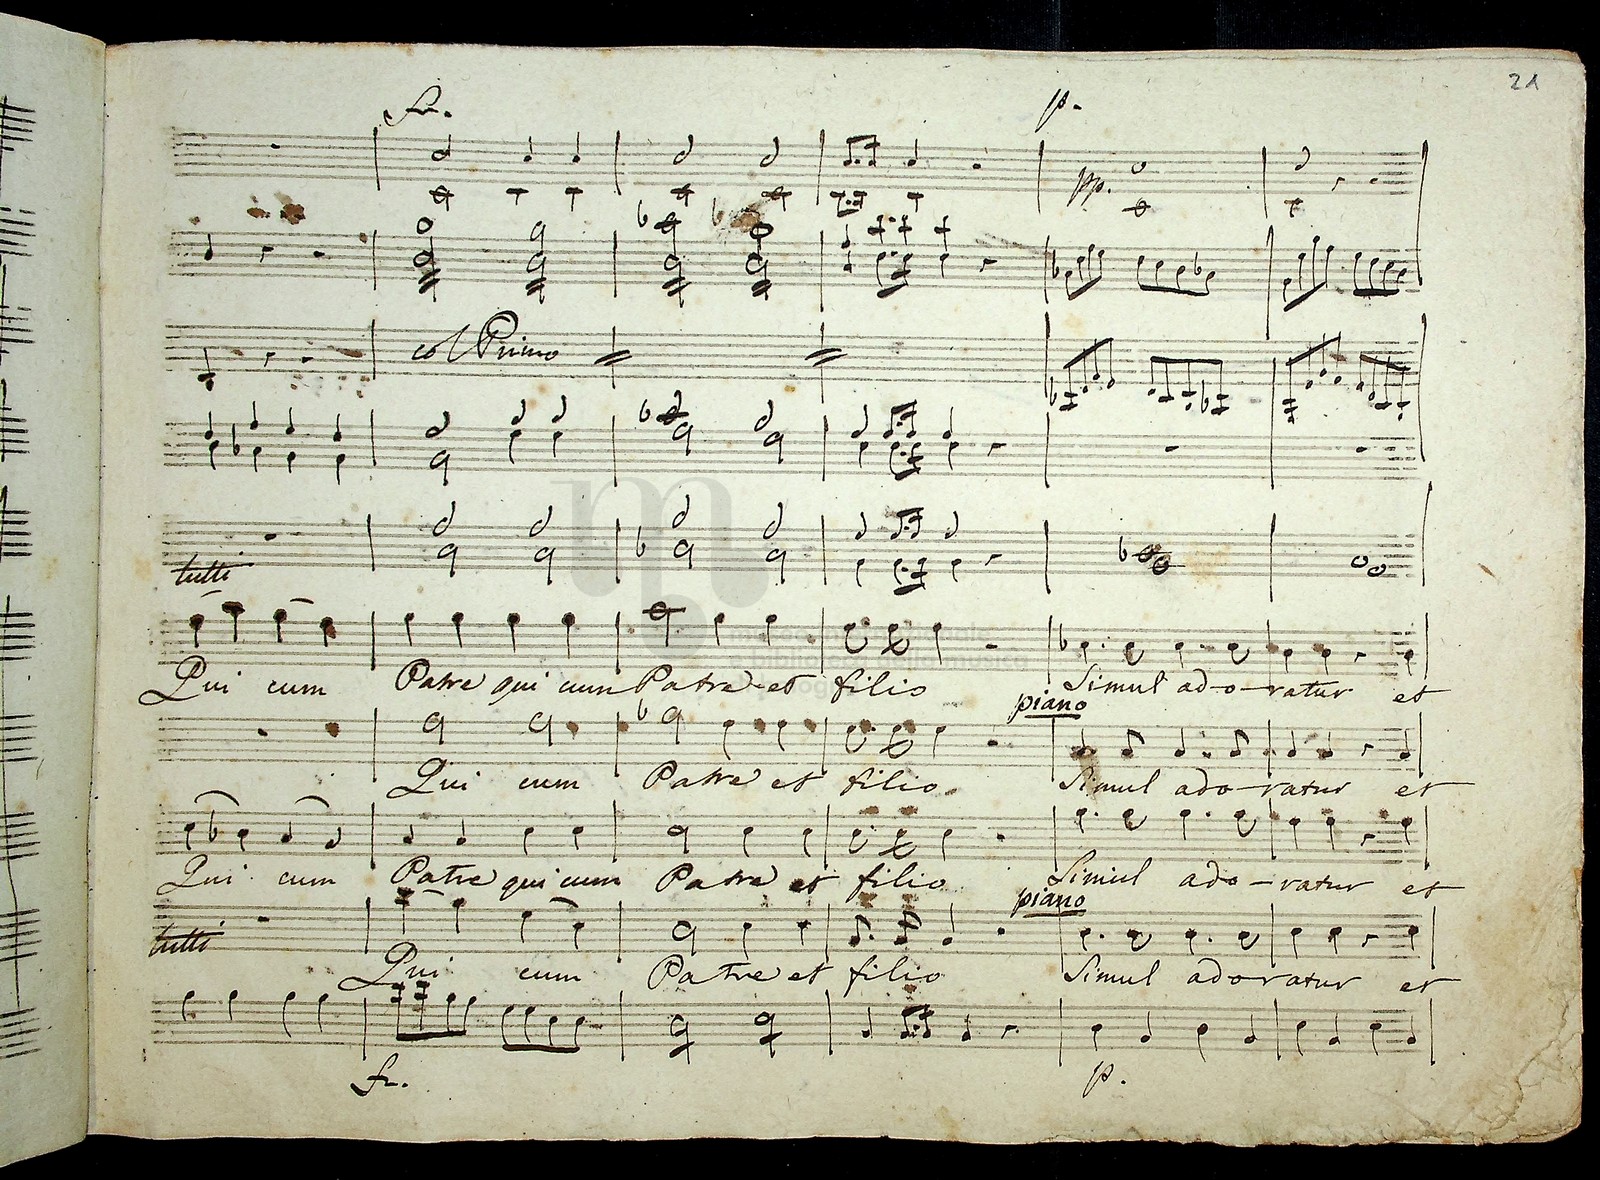 21
fr.
p.
pp.
col Primo
tutti
Qui cum Patre qui cum Patre et filio Simul ado-ratur et
piano
Qui cum Patre et filio Simul ado-ratur et
Qui cum Patre qui cum Patre et filio Simul ado-ratur et
piano
tutti
Qui cum Patre et filio Simul adoratur et
fr.
p.